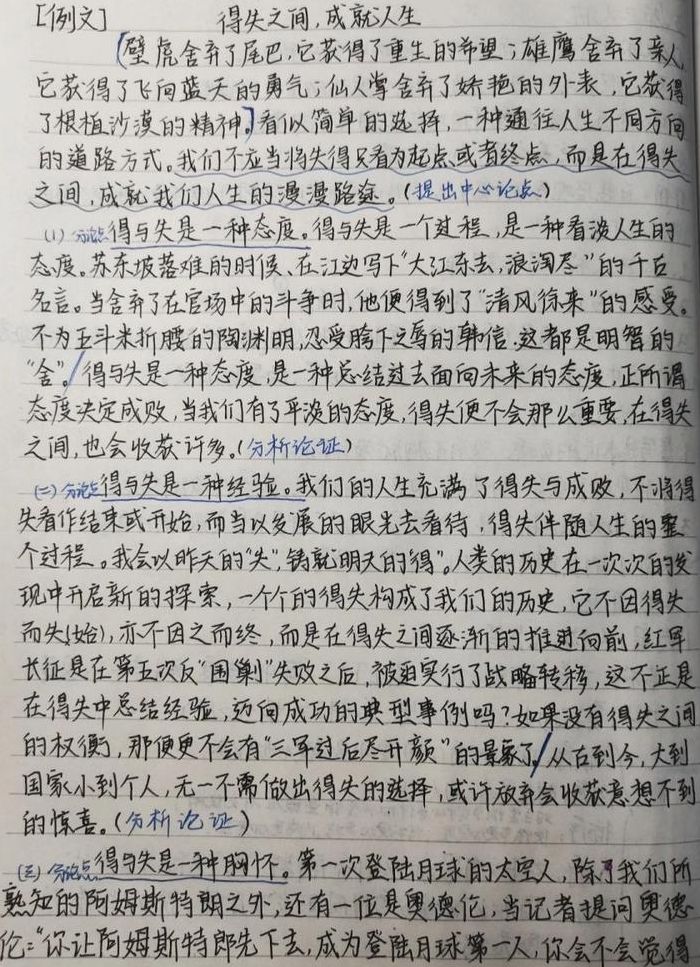 [例文] 得失之间,成就人生
(壁虎舍弃了尾巴,它获得了重生的希望;雄鹰舍弃了亲人
它获得了飞向蓝天的勇气;仙人掌舍弃了娇艳的外表,它获得
了根植沙漠的精神。]看似简单的选择,一种通往人生不同方向
的道路方式。我们不应当将失得只看为起点或者终点,而是在得失
之间,成就我们人生的漫漫路途。(提出中心论点)
(1)分论点得与失是一种态度。得与失是一个过程,是一种看淡人生的
态度。苏东坡落难的时候、在江边写下"大江东去,浪淘尽"的千古
名言。当舍弃了在官场中的斗争时,他便得到了"清风徐来"的感受。
不为五斗米折腰的陶渊明,忍受胯下之辱的韩信.这都是明智的
"舍"。/得与失是一种态度,是一种总结过去面向未来的态度,正所谓
态度决定成败,当我们有了平淡的态度,得失便不会那么重要,在得失
之间,也会收获许多。(分析论证)
(二)分论点得与失是一种经验。我们的人生充满了得失与成败,不将得
失看作结束或开始,而当以发展的眼光去看待,得失伴随人生的整
个过程。我会以昨天的"失",铸就明天的"得"。人类的历史在一次次的发
现中开启新的探索,一个个的得失构成了我们的历史,它不因得失
而失(始),亦不因之而终,而是在得失之间逐渐的推进向前,红军
长征是在第五次反"围剿"失败之后,被迫实行了战略转移,这不正是
在得失中总结经验,迈向成功的典型事例吗?如果没有得失之间
的权衡,那便更不会有"三军过后尽开颜"的景象了。/从古到今,大到
国家小到个人,无一不需做出得失的选择,或许放弃会收获意想不到
的惊喜。(分析论证)
(三)分论点得与失是一种胸怀。第一次登陆月球的太空人,除了我们所
熟知的阿姆斯特朗之外,还有一位是奥德伦,当记者提问奥德
伦:"你让阿姆斯特郎先下去,成为登陆月球第一人,你会不会觉得